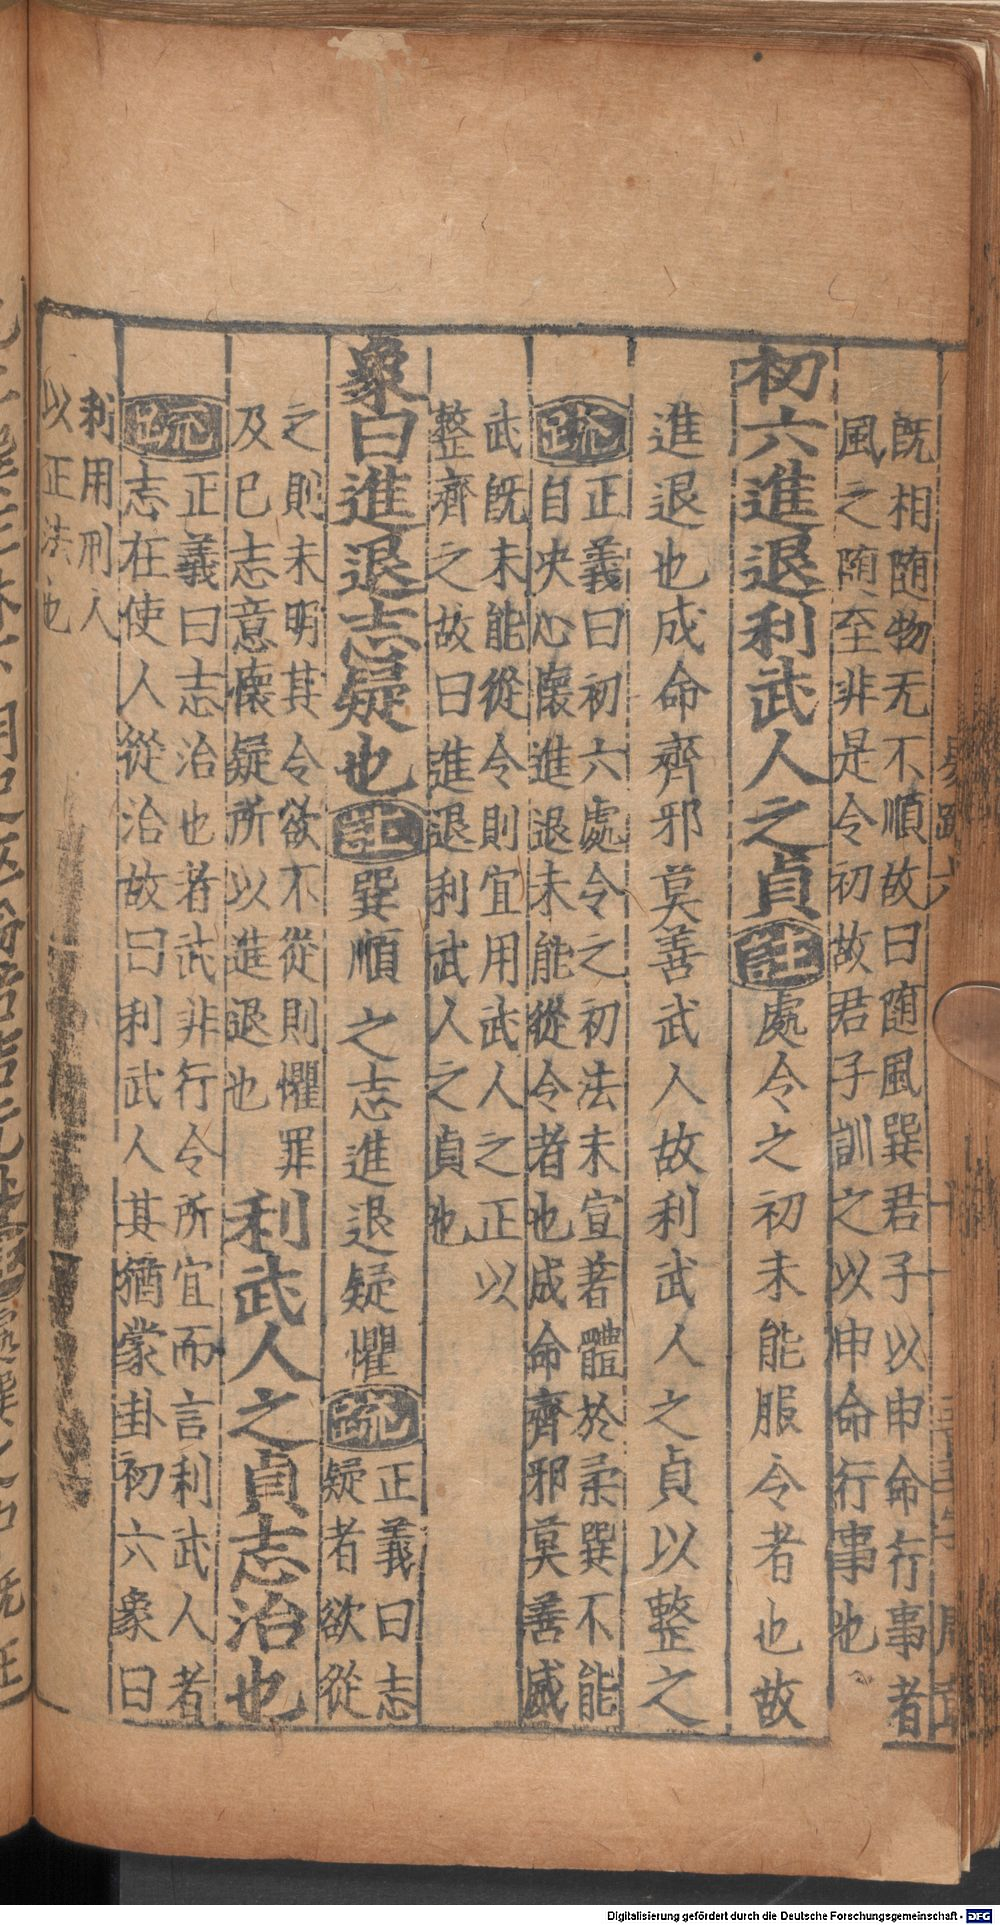 既相随物无不順故曰随風巽君子以申命行事者
風之随至非是令初故君子訓之以申命行事也
初六進退利武人之貞註處令之初未能服令者也故
進退也成命齊邪莫善武人故利武人之貞以整之
疏正義曰初六處令之初法未宣著體於柔巽不能
自决心懷進退未能從令者也成命齊邪莫善威
武既未能從令則宜用武人之正以
整齊之故曰進退利武人之貞也
象曰進退志疑也註巽順之志進退疑懼疏正義曰志
疑者欲從
之則未明其令欲不從則懼罪
及已志意懷疑所以進退也
利武人之貞志治也
疏正義曰志治也者武非行令所宜而言利武人者
志在使人從治故曰利武人其猶蒙卦初六象曰
利用刑人
以正法也
Digitalisierung gefördert durch die Deutsche Forschungsgemeinschaft - DFG